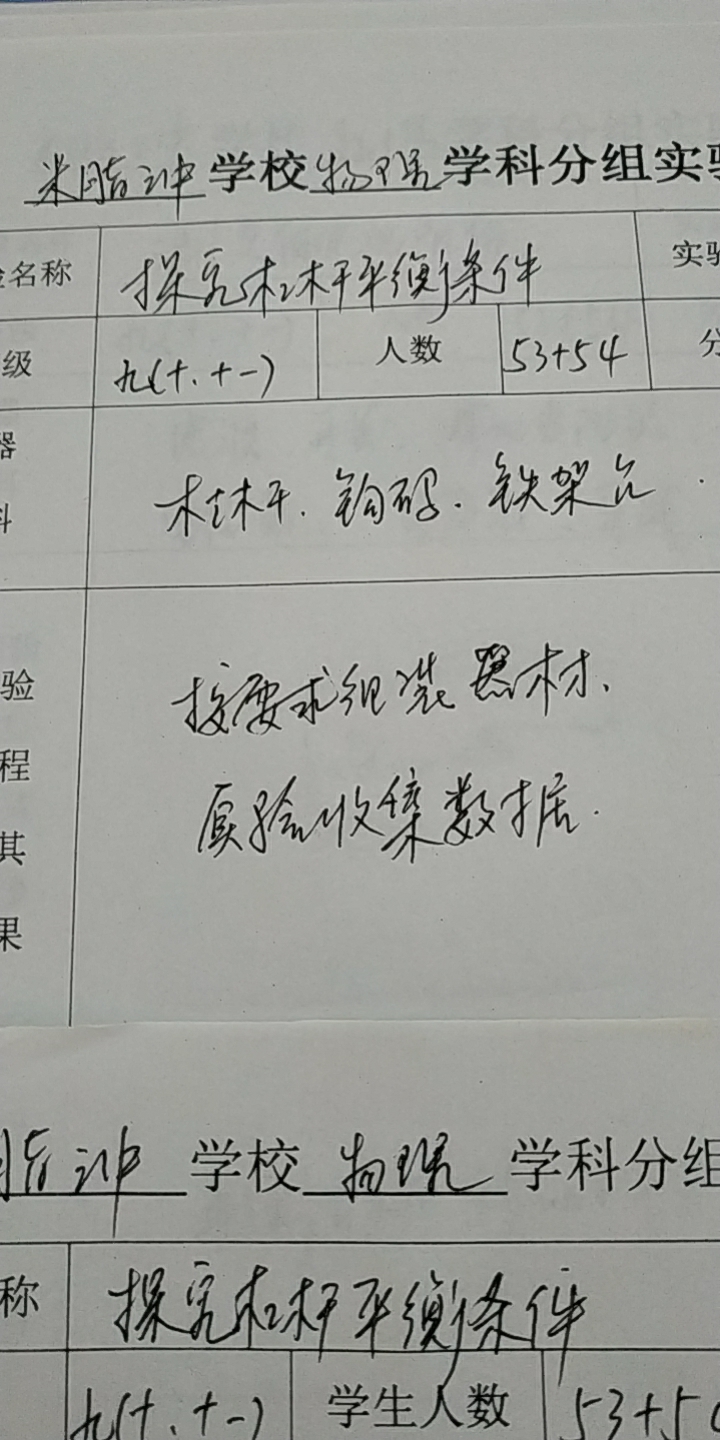 米脂冲学校物理学科分组实验
名称 探究杠杆平衡条件 实验
级 九(十、十一) 人数 53+54 分
器 杠杆、钩码、铁架台
料
验 按要求组装器材、
程 实验收集数据.
其
果
脂冲学校物理学科分组
称 探究杠杆平衡条件
九(十、十一) 学生人数 53+5